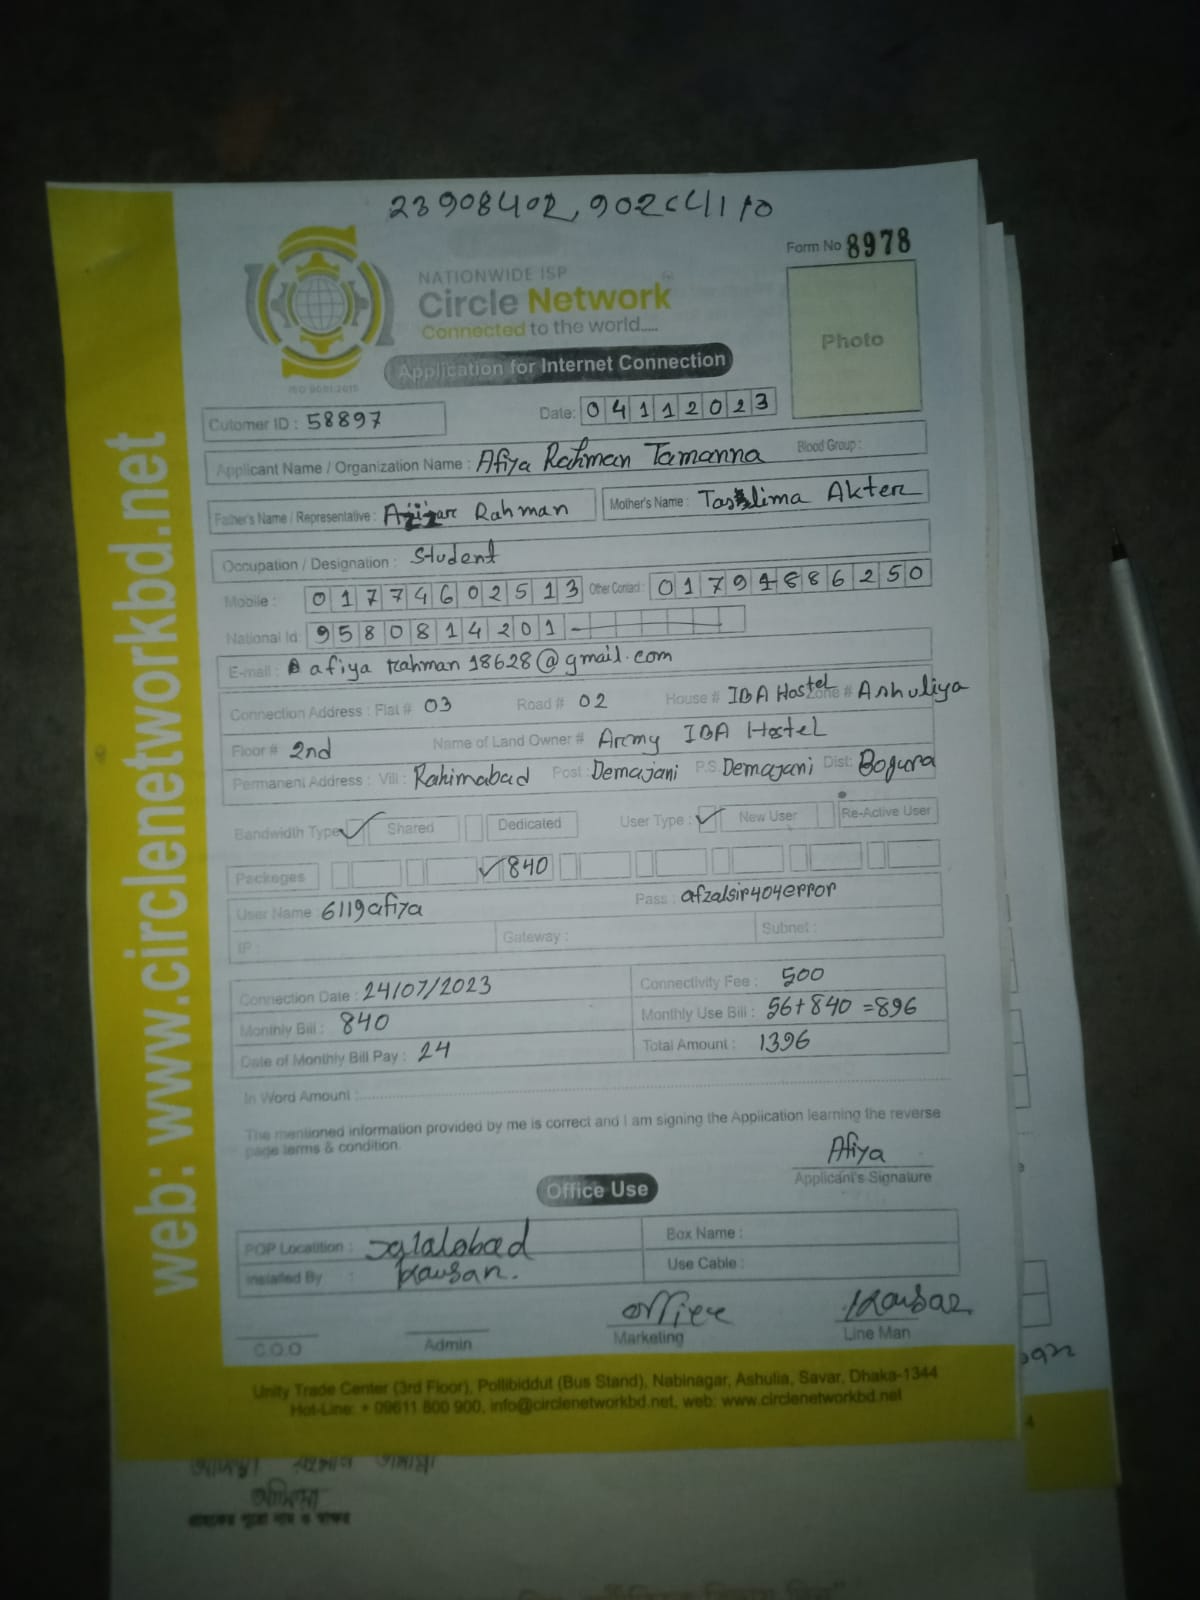 23908402, 902c4110
Form No 8978
NATIONWIDE ISP
Circle Network
Connected to the world.....
ISO 9001:2015
Application for Internet Connection
Photo
Cutomer ID : 58897
Date: 04112023
Applicant Name / Organization Name : Afiya Rahman Tamanna Blood Group :
Father's Name / Representative : Azizar Rahman Mother's Name : Taslima Akter
Occupation / Designation : Student
Mobile : 01774602513 Other Contact : 01794886250
National Id: 9580814201
E-mail : afiya rahman 18628@gmail.com
Connection Address : Flat # 03 Road # 02 House # IBA Hostel Zone # Ashuliya
Floor # 2nd Name of Land Owner # Army IBA Hostel
Permanent Address : Vill : Rahimabad Post : Demajani P.S: Demajani Dist: Bogura
Bandwidth Type Shared Dedicated User Type : New User Re-Active User
Packages 840
User Name : 6119afiya Pass : afzalsir404error
IP : Gateway : Subnet :
Connection Date : 24/07/2023 Connectivity Fee : 500
Monthly Bill : 840 Monthly Use Bill : 56+840 =896
Date of Monthly Bill Pay : 24 Total Amount : 1396
In Word Amount :
The mentioned information provided by me is correct and I am signing the Application learning the reverse
page terms & condition.
Afiya
Applicant's Signature
Office Use
POP Locatition : Jalalabad Box Name :
Installed By : Kausar. Use Cable :
office Kausar
C.O.O Admin Marketing Line Man
Unity Trade Center (3rd Floor), Pollibiddut (Bus Stand), Nabinagar, Ashulia, Savar, Dhaka-1344
Hot-Line: + 09611 800 900, info@circlenetworkbd.net, web: www.circlenetworkbd.net
web: www.circlenetworkbd.net